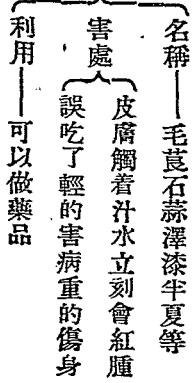 名稱——毛茛石蒜澤漆半夏等
害處
皮膚觸着汁水立刻會紅腫
誤吃了輕的害病重的傷身
利用——可以做藥品